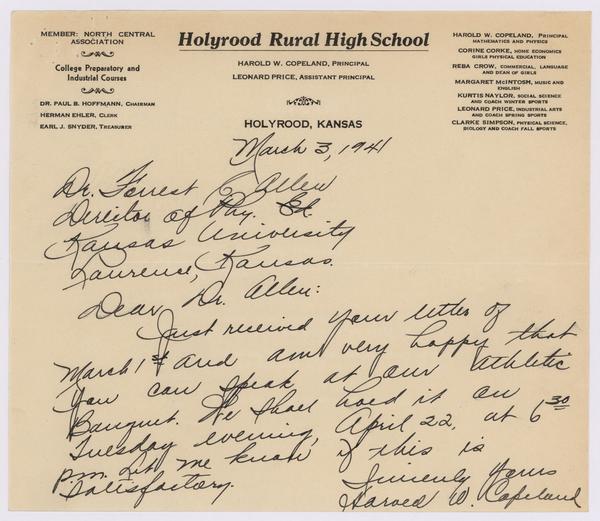 MEMBER: NORTH CENTRAL
ASSOCIATION
College Preparatory and
Industrial Courses
DR. PAUL B. HOFFMANN, CHAIRMAN
HERMAN EHLER, CLERK
EARL J. SNYDER, TREASURER
Holyrood Rural High School
HAROLD W. COPELAND, PRINCIPAL
LEONARD PRICE, ASSISTANT PRINCIPAL
HOLYROOD, KANSAS
HAROLD W. COPELAND, PRINCIPAL
MATHEMATICS AND PHYSICS
CORINE CORKE, HOME ECONOMICS
GIRLS PHYSICAL EDUCATION
REBA CROW, COMMERCIAL, LANGUAGE
AND DEAN OF GIRLS
MARGARET McINTOSH, MUSIC AND
ENGLISH
KURTIS NAYLOR, SOCIAL SCIENCE
AND COACH WINTER SPORTS
LEONARD PRICE, INDUSTRIAL ARTS
AND COACH SPRING SPORTS
CLARKE SIMPSON, PHYSICAL SCIENCE,
BIOLOGY AND COACH FALL SPORTS
March 3, 1941
Dr. Forrest C Allen
Director of Phy. Ed.
Kansas University
Laurense, Kansas.
Dear Dr. Allen:
Just received your letter of
March 1st and am very happy that
you can speak at our athletic
Banquet. We shall hold it on
Tuesday evening, April 22, at 6 30
p.m. Let me know if this is
satisfactory.
Sincerely Yours
Harold W. Copeland